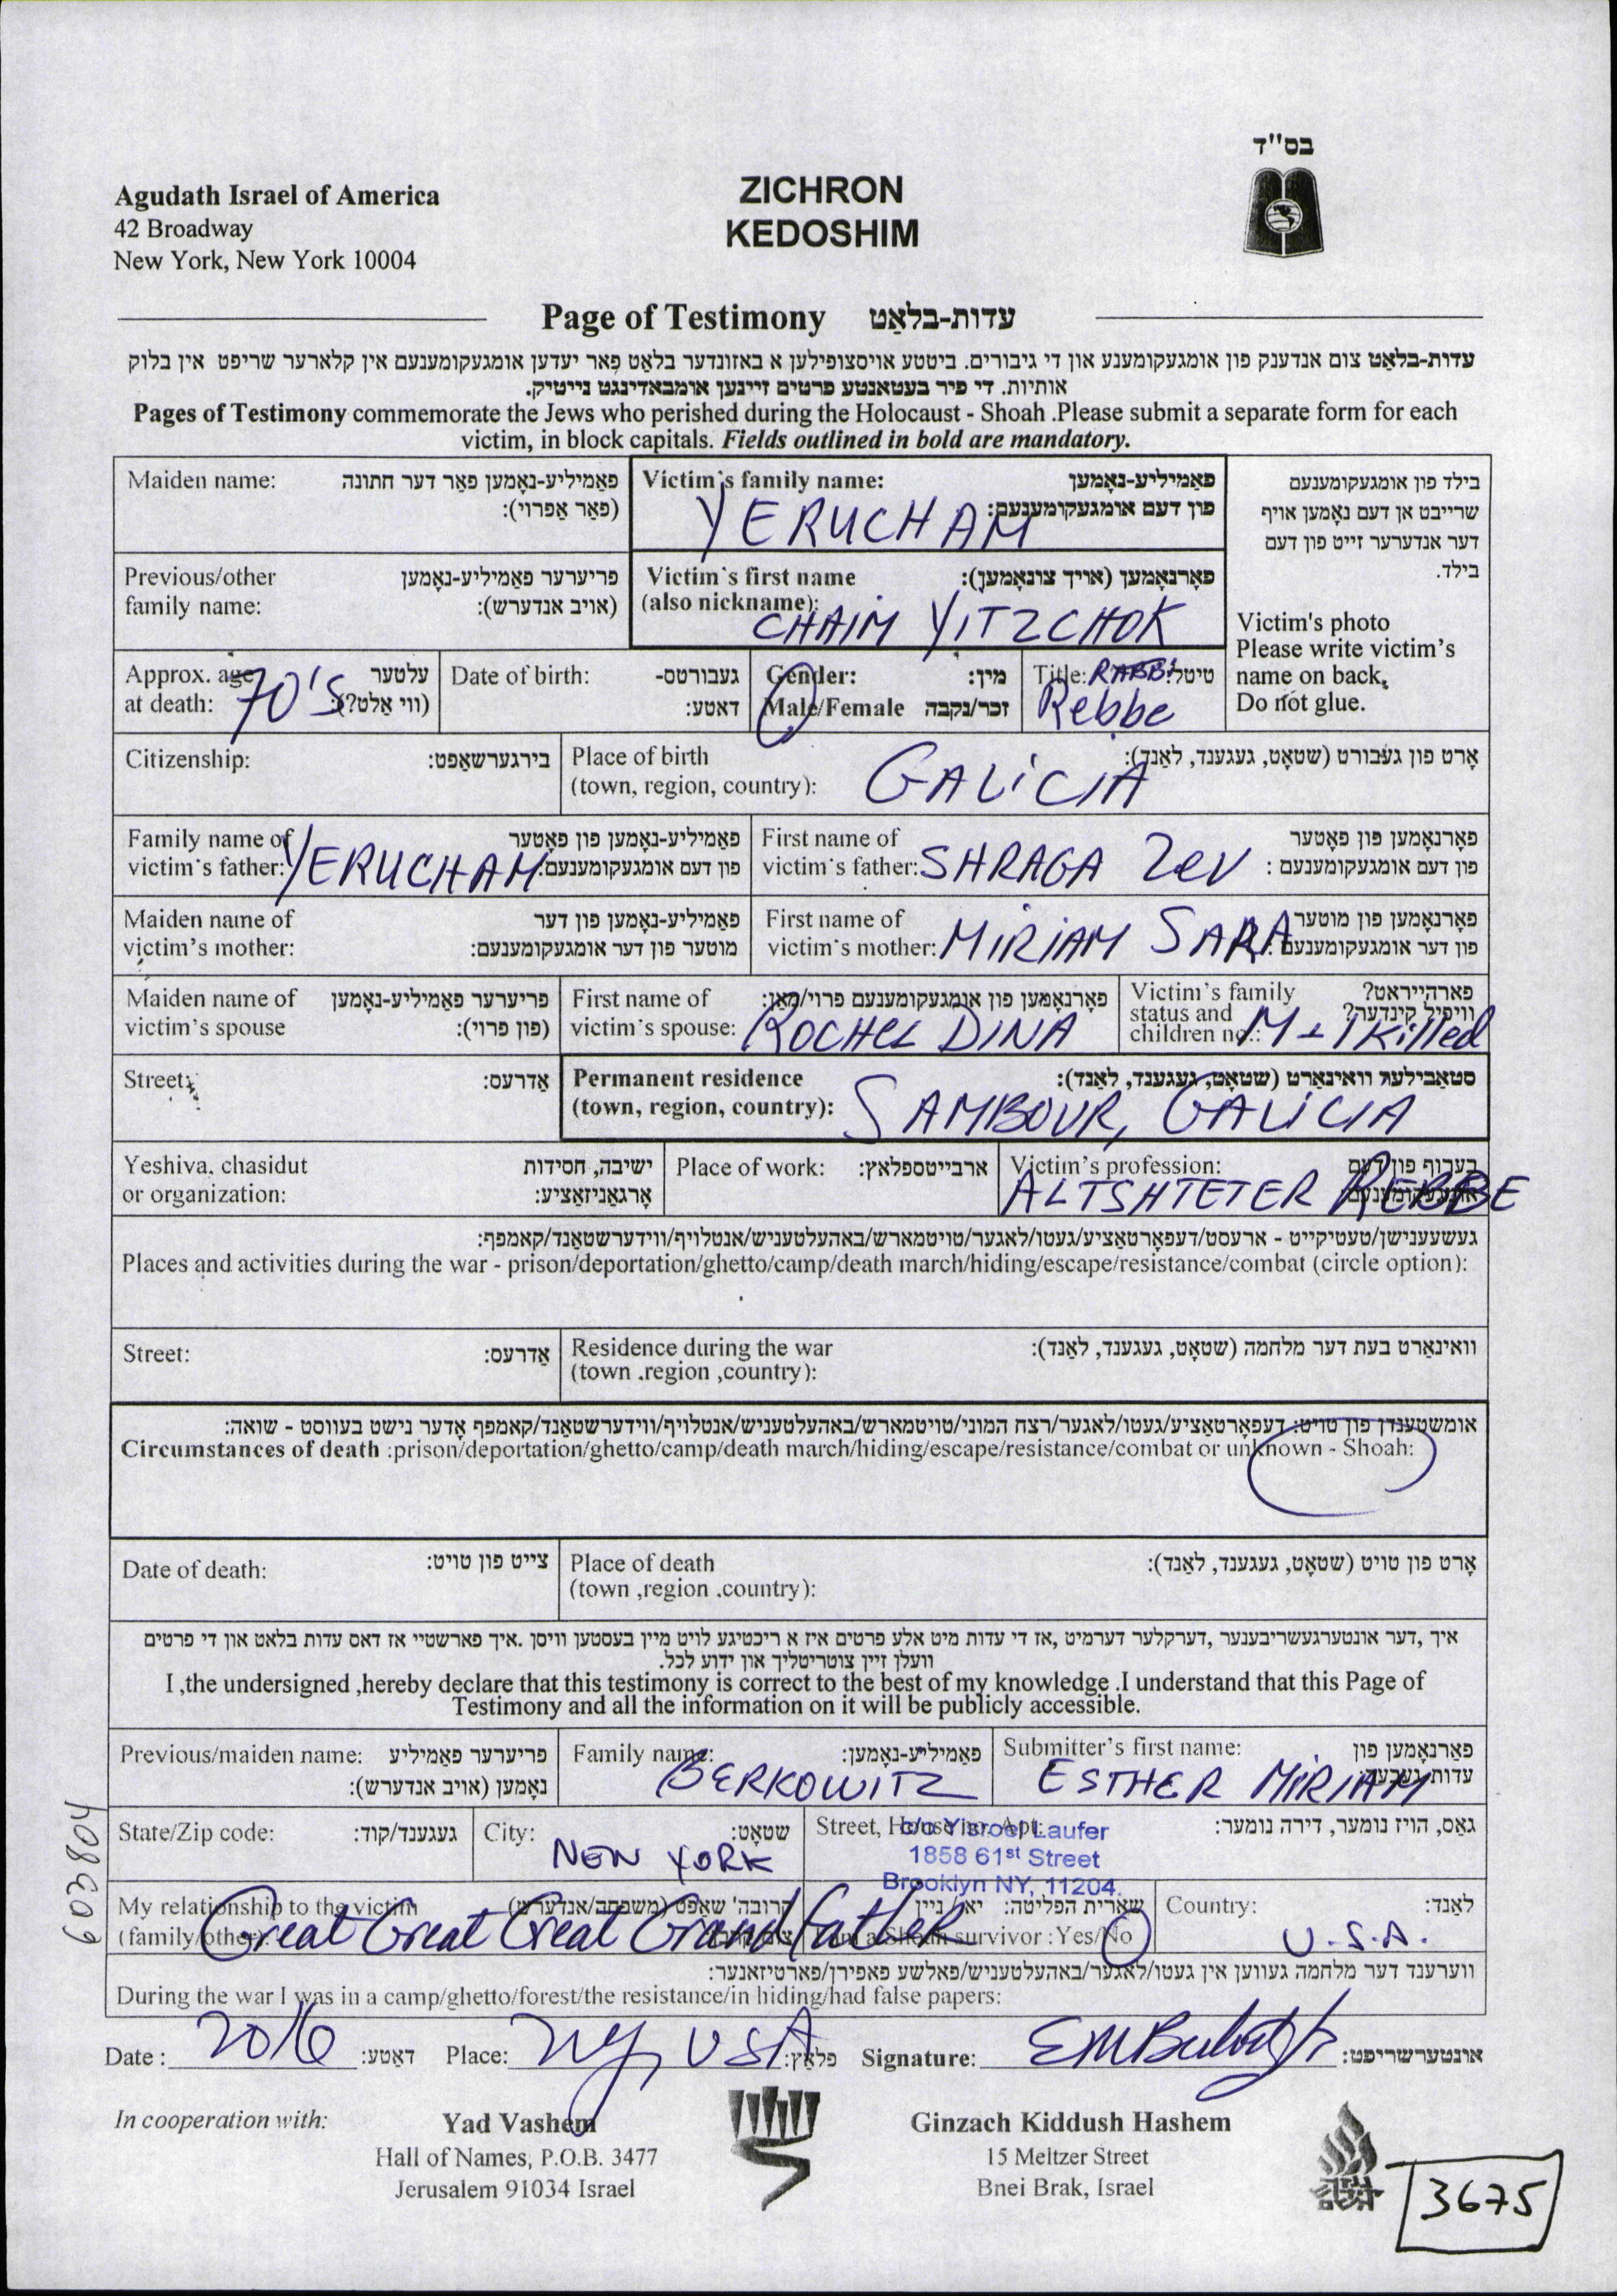 בס"ד
Agudath Israel of America
42 Broadway
New York, New York 10004
ZICHRON
KEDOSHIM
Page of Testimony עדות-בלאַט
עדות-בלאַט צום אנדענק פון אומגעקומענע און די גיבורים. ביטטע אויסצופילען א באזונדער בלאַט פאַר יעדען אומגעקומענעם אין קלארער שריפט אין בלוק
אותיות. די פיר בעטאנטע פרטים זיינען אומבאדינגט נייטיק.
Pages of Testimony commemorate the Jews who perished during the Holocaust - Shoah .Please submit a separate form for each
victim, in block capitals. Fields outlined in bold are mandatory.
Maiden name: פאַמיליע-נאָמען פאַר דער חתונה
(פאַר אַפרוי):
Victim's family name: פאַמיליע-נאָמען
פון דעם אומגעקומענעם:
YERUCHAM
בילד פון אומגעקומענעם
שרייבט אן דעם נאָמען אויף
דער אנדערער זייט פון דעם
בילד.
Victim's photo
Please write victim's
name on back.
Do not glue.
Previous/other פריערער פאַמיליע-נאָמען
family name: (אויב אנדערש):
Victim's first name פאָרנאָמען (אויך צונאָמען):
(also nickname):
CHAIM YITZCHOK
Approx. age עלטער
at death: (ווי אַלט?):
70'S
Date of birth: געבורטס-
דאַטע:
Gender: מין:
Male/Female זכר/נקבה
Title: טיטל:
RABBI
Rebbe
Citizenship: בירגערשאַפט:
Place of birth אָרט פון געבורט (שטאָט, געגענד, לאַנד):
(town, region, country):
GALICIA
Family name of פאַמיליע-נאָמען פון פאָטער
victim's father: פון דעם אומגעקומענעם:
YERUCHAM
First name of פאָרנאָמען פון פאָטער
victim's father: פון דעם אומגעקומענעם:
SHRAGA Zev
Maiden name of פאַמיליע-נאָמען פון דער
victim's mother: מוטער פון דער אומגעקומענעם:
First name of פאָרנאָמען פון מוטער
victim's mother: פון דער אומגעקומענעם:
MIRIAM SARA
Maiden name of פריערער פאַמיליע-נאָמען
victim's spouse (פון פרוי):
First name of פאָרנאָמען פון אומגעקומענעם פרוי/מאַן:
victim's spouse:
ROCHEL DINA
Victim's family פארהייראט?
status and וויפיל קינדער?
children no.:
M - 1 Killed
Street: אַדרעס:
Permanent residence סטאַבילער וואינאַרט (שטאָט, געגענד, לאַנד):
(town, region, country):
SAMBOUR, GALICIA
Yeshiva, chasidut ישיבה, חסידות
or organization: אָרגאַניזאַציע:
Place of work: ארבייטספלאַץ:
Victim's profession: בערוף פון דעם
ALTSHTETER REBBE
געשעענישן/טעטיקייט - ארעסט/דעפּאָרטאַציע/געטו/לאגער/טויטמארש/באהעלטעניש/אנטלויף/ווידערשטאַנד/קאמפף:
Places and activities during the war - prison/deportation/ghetto/camp/death march/hiding/escape/resistance/combat (circle option):
Street: אַדרעס:
Residence during the war וואינאַרט בעת דער מלחמה (שטאָט, געגענד, לאַנד):
(town .region ,country):
אומשטענדן פון טויט: דעפּאָרטאַציע/געטו/לאגער/רצח המוני/טויטמארש/באהעלטעניש/אנטלויף/ווידערשטאַנד/קאמפף אָדער נישט בעווסט - שואה:
Circumstances of death :prison/deportation/ghetto/camp/death march/hiding/escape/resistance/combat or unknown - Shoah:
Date of death: צייט פון טויט:
Place of death אָרט פון טויט (שטאָט, געגענד, לאַנד):
(town ,region .country):
איך ,דער אונטערגעשריבענער ,דערקלער דערמיט ,אז די עדות מיט אלע פרטים איז א ריכטיגע לויט מיין בעסטען וויסן .איך פארשטיי אז דאס עדות בלאט און די פרטים
וועלן זיין צוטריטליך און ידוע לכל.
I ,the undersigned ,hereby declare that this testimony is correct to the best of my knowledge .I understand that this Page of
Testimony and all the information on it will be publicly accessible.
Previous/maiden name: פריערער פאַמיליע
נאָמען (אויב אנדערש):
Family name: פאַמיליע-נאָמען:
BERKOWITZ
Submitter's first name: פאַרנאָמען פון
ESTHER MIRIAM
State/Zip code: געגענד/קוד:
City: שטאָט:
NEW YORK
Street, House no. Apt: גאַס, הויז נומער, דירה נומער:
c/o Yisroel Laufer
1858 61st Street
Brooklyn NY, 11204.
My relationship to the victim
(family/other):
Great Great Great Grandfather
שארית הפליטה: יא/ניין
I am a Shoah survivor : Yes/No
Country: לאַנד:
U.S.A.
ווערענד דער מלחמה געווען אין געטו/לאגער/באהעלטעניש/פאלשע פאפירן/פארטיזאנער:
During the war I was in a camp/ghetto/forest/the resistance/in hiding/had false papers:
Date : 2016 דאַטע: Place: NY, USA פלאַץ: Signature: אונטערשריפט:
In cooperation with:
Yad Vashem
Hall of Names, P.O.B. 3477
Jerusalem 91034 Israel
Ginzach Kiddush Hashem
15 Meltzer Street
Bnei Brak, Israel
3675
603804